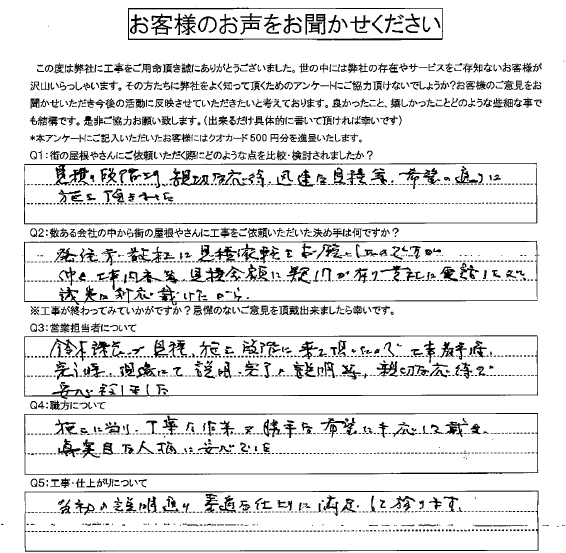 お客様のお声をお聞かせください
この度は弊社に工事をご用命頂き誠にありがとうございました。世の中には弊社の存在やサービスをご存知ないお客様が
沢山いらっしゃいます。その方たちに弊社をよく知って頂くためのアンケートにご協力頂けないでしょうか?お客様のご意見をお
聞かせいただき今後の活動に反映させていただきたいと考えております。良かったこと、嬉しかったことどのような些細な事で
も結構です。是非ご協力お願い致します。(出来るだけ具体的に書いて頂ければ幸いです)
*本アンケートにご記入いただいたお客様にはクオカード500円分を進呈いたします。
Q1:街の屋根やさんにご依頼いただく際にどのような点を比較・検討されましたか?
見積の段階より、親切な応待、迅速な見積等、希望の通りに
施工頂きました
Q2:数ある会社の中から街の屋根やさんに工事をご依頼いただいた決め手は何ですか?
見積依頼を
工事内容等見積金額に
対応戴けたから
※工事が終わってみていかがですか?忌憚のないご意見を頂戴出来ましたら幸いです。
Q3:営業担当者について
鈴木課長が見積、施工段階に来て頂いたので工事着手時、
完了時、現場にて説明・完了の説明等、親切な応待で
安心致しました
Q4:職方について
施工に当り、丁寧な作業又勝手な希望に対応して戴き、
真実目な人柄に安心でした
Q5:工事・仕上がりについて
当初の説明通り 仕上りに満足して捨ります。